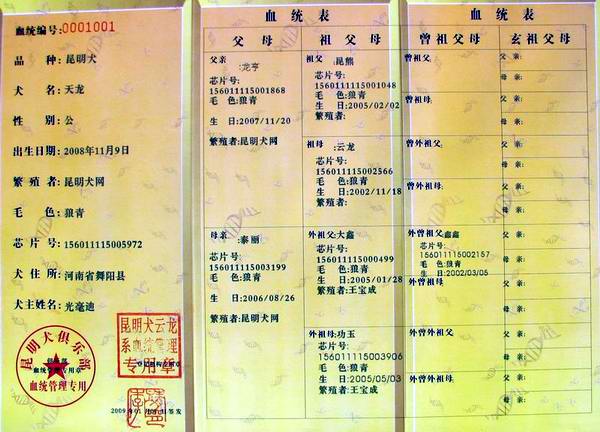 血统编号:0001001
品 种:昆明犬
犬 名:天龙
性 别:公
出生日期:2008年11月9日
繁 殖 者:昆明犬网
毛 色:狼青
芯 片 号:156011115005972
犬 住 所:河南省舞阳县
犬主姓名:光毫迪
昆明犬俱乐部
血统管理专用
昆明犬云龙
系血统管理
专用章
血统表
父母
祖父母
父亲
:龙亨
芯片号:
156011115001868
毛 色:狼青
生 日:2007/11/20
繁殖者:昆明犬网
母亲
:泰丽
芯片号:
156011115003199
毛 色:狼青
生 日:2006/08/26
繁殖者:昆明犬网
祖父:昆熊
芯片号:
156011115001048
毛 色:狼青
生 日:2005/02/02
繁殖者:
祖母:云龙
芯片号:
156011115002566
毛 色:狼青
生 日:2002/11/18
繁殖者:
外祖父:大鑫
芯片号:
156011115000499
毛 色:狼青
生 日:2005/01/28
繁殖者:王宝成
外祖母:功玉
芯片号:
156011115003906
毛 色:狼青
生 日:2005/05/03
繁殖者:王宝成
血统表
曾祖父母
玄祖父母
曾祖父:
父 亲:
母 亲:
曾祖母:
父 亲:
母 亲:
曾外祖父:
父 亲:
母 亲:
曾外祖母:
父 亲:
母 亲:
曾外祖父:鑫鑫
芯片号:
156011115002157
毛 色:狼青
生 日:2002/03/05
父 亲:
母 亲:
曾外祖母:
父 亲:
母 亲:
曾曾外祖父:
父 亲:
母 亲:
曾曾外祖母:
父 亲:
母 亲: